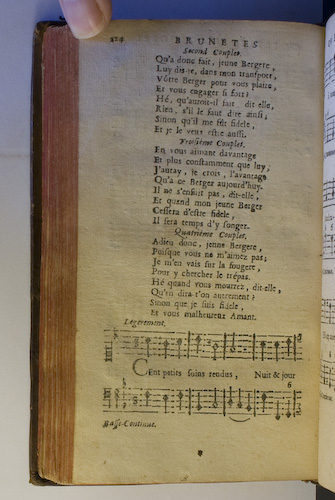 124 BRUNETES
Second Couplet.
Qu'a donc fait, jeune Bergere,
Luy dis-je, dans mon transport,
Vôtre Berger pour vous plaire,
Et vous engager si fort?
Hé, qu'auroit-il fait, dit-elle,
Rien, s'il le faut dire aussi;
Sinon qu'il me est fidele,
Et je le veux estre aussi.
Troisième Couplet.
En vous aimant davantage
Et plus constamment que luy,
J'auray, je crois, l'avantage
Qu'a ce Berger aujourd'huy.
Il ne s'ensuit pas, dit-elle,
Et quand mon jeune Berger
Cessera d'estre fidele,
Il sera temps d'y songer.
Quatriéme Couplet.
Adieu donc, jeune Bergere,
Puisque vous ne m'aimez pas;
Je m'en vais sur la fougere,
Pour y chercher le trépas.
Hé quand vous mourrez, dit-elle,
Qu'en dira-t'on autrement?
Sinon que je suis fidele,
Et vous malheureux Amant.
Legerement,
CEnt petits soins rendus, Nuit & jour
6
Basse-Continue.